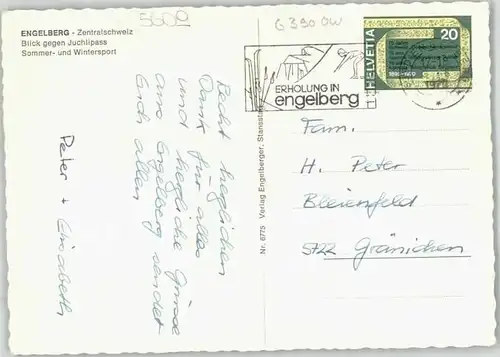 ENGELBERG - Zentralschweiz
Blick gegen Juchlipass
Sommer- und Wintersport
5500
G 390 OW
ERHOLUNG IN
engelberg
HELVETIA
20
Recht herzlichen
Dank für alles
und herzliche Grüsse
aus Engelberg sendet
Euch allen
Peter + Elisabeth
Nr. 6775 Verlag Engelberger, Stansstad
Fam.
H. Peter
Bleienfeld
5722 Gränichen